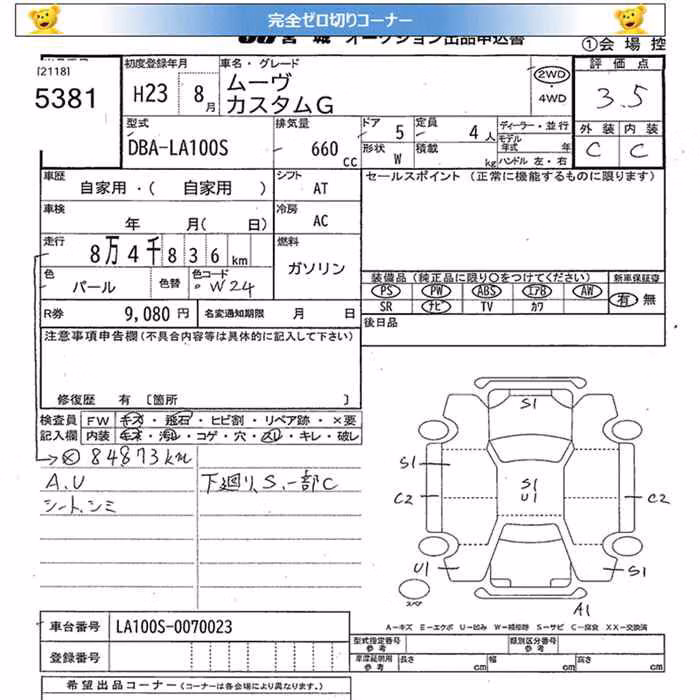 完全ゼロ切りコーナー
宮城 オークション出品申込書 ①会場控
[2118]
5381
初度登録年月 H23 8月
車名・グレード
ムーヴ
カスタムG
2WD
・4WD
評価点
3.5
外装 内装
C C
型式
DBA-LA100S
排気量
660 cc
ドア 5
定員 4人
ディーラー・並行
モデル年式 年
形状 W
積載 kg
ハンドル 左・右
車歴
自家用・( 自家用 )
シフト
AT
セールスポイント (正常に機能するものに限ります)
車検
年 月( 日)
冷房
AC
走行
8万4千836 km
燃料
ガソリン
色
パール
色替
色コード
W24
装備品(純正品に限り○をつけてください)
新車保証書
PS PW ABS エアB AW
有・無
SR ナビ TV カワ
R券 9,080円
名変通知期限 月 日
後日品
注意事項申告欄(不具合内容等は具体的に記入して下さい)
修復歴 有 〔箇所 〕
検査員 FW キズ・飛石・ヒビ割・リペア跡・×要
記入欄 内装 キズ・汚レ・コゲ・穴・スレ・キレ・破レ
84873km
A.U
シート.シミ
下廻り、S.一部C
S1
S1
S1
U1
C2
C2
U1
S1
A1
スペア
A-キズ E-エクボ U-凹み W-補修跡 S-サビ C-腐食 XX-交換済
車台番号 LA100S-0070023
登録番号
型式指定番号
参考
類別区分番号
参考
車庫証明用
参考
長さ cm
幅 cm
高さ cm
希望出品コーナー (コーナーは各会場により異なります。)